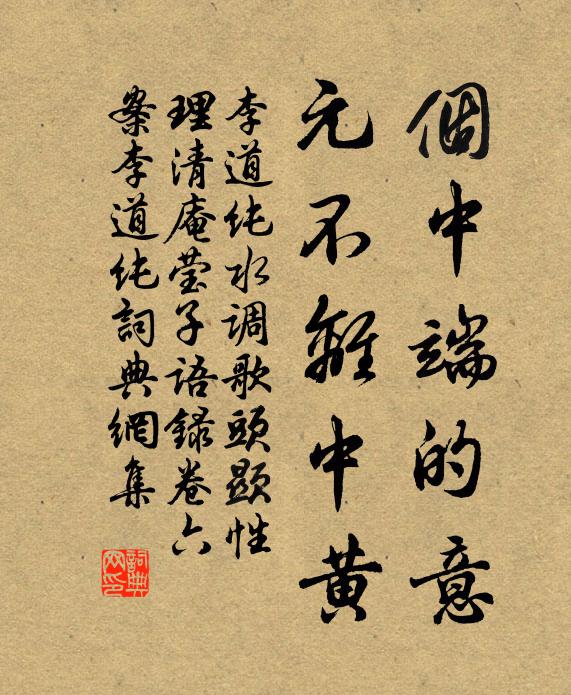 個中端的意
元不離中黄
李道纯水调歌頭顯性
理清庵莹子语録卷六
案李道纯詞典網集
詞典网印